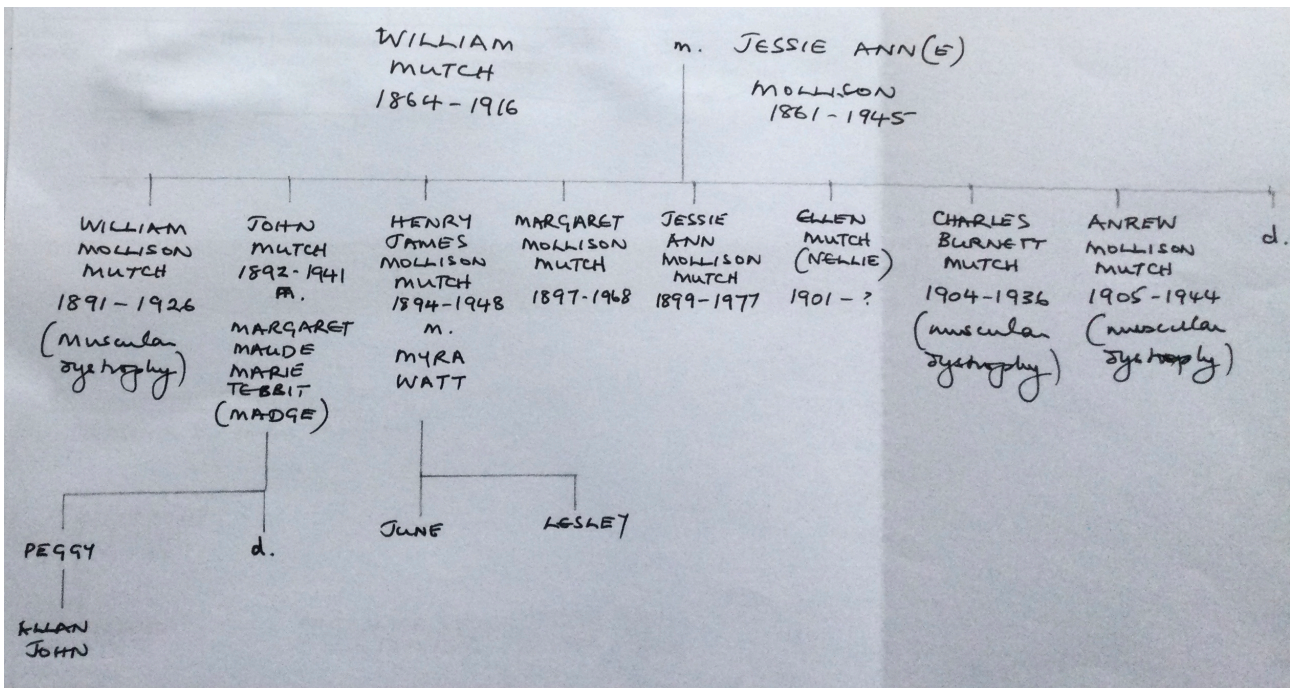 WILLIAM
MUTCH
1864 - 1916
m. JESSIE ANN(E)
MOLLISON
1861 - 1945
WILLIAM
MOLLISON
MUTCH
1891 - 1926
(Muscular
dystrophy)
JOHN
MUTCH
1892 - 1941
m.
MARGARET
MAUDE
MARIE
TEBBIT
(MADGE)
HENRY
JAMES
MOLLISON
MUTCH
1894 - 1948
m.
MYRA
WATT
MARGARET
MOLLISON
MUTCH
1897 - 1968
JESSIE
ANN
MOLLISON
MUTCH
1899 - 1977
ELLEN
MUTCH
(NELLIE)
1901 - ?
CHARLES
BURNETT
MUTCH
1904 - 1936
(muscular
dystrophy)
ANREW
MOLLISON
MUTCH
1905 - 1944
(muscular
dystrophy)
d.
PEGGY
d.
JUNE
LESLEY
ALLAN
JOHN